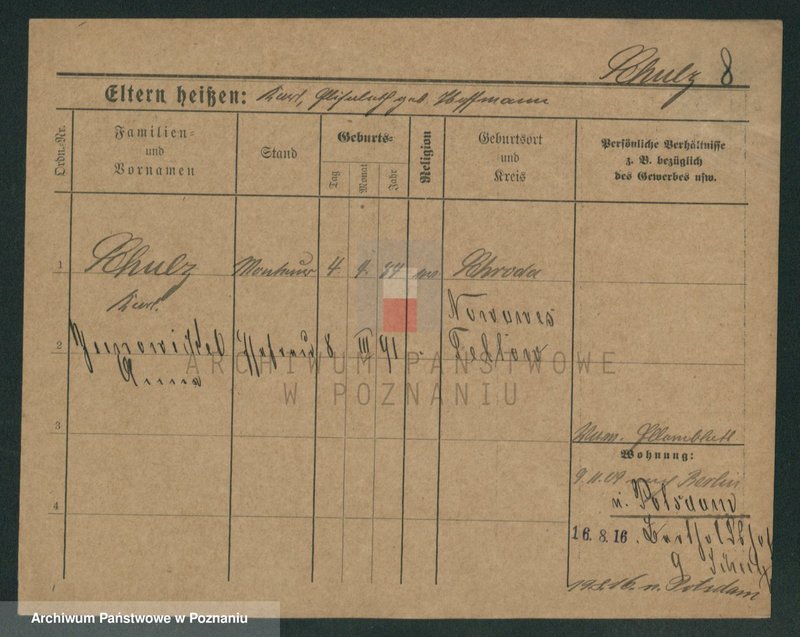 Schulz 8
Eltern heißen: Karl, Elisabeth geb. Hoffmann
Ordn.-Nr.
Familien-
und
Vornamen
Stand
Geburts-
Tag
Monat
Jahr
Religion
Geburtsort
und
Kreis
Persönliche Verhältnisse
z. B. bezüglich
des Gewerbes usw.
1 Schulz Monteur 4 9. 84 ev Schroda
Karl.
Nowawes
2 Ehefrau 8 III 91 Teltow
Anna
ARCHIWUM PAŃSTWOWE
W POZNANIU
3
Wohnung:
9.11.09 nach Berlin
n. Potsdam
4
16.8.16.
n. Potsdam
Archiwum Państwowe w Poznaniu